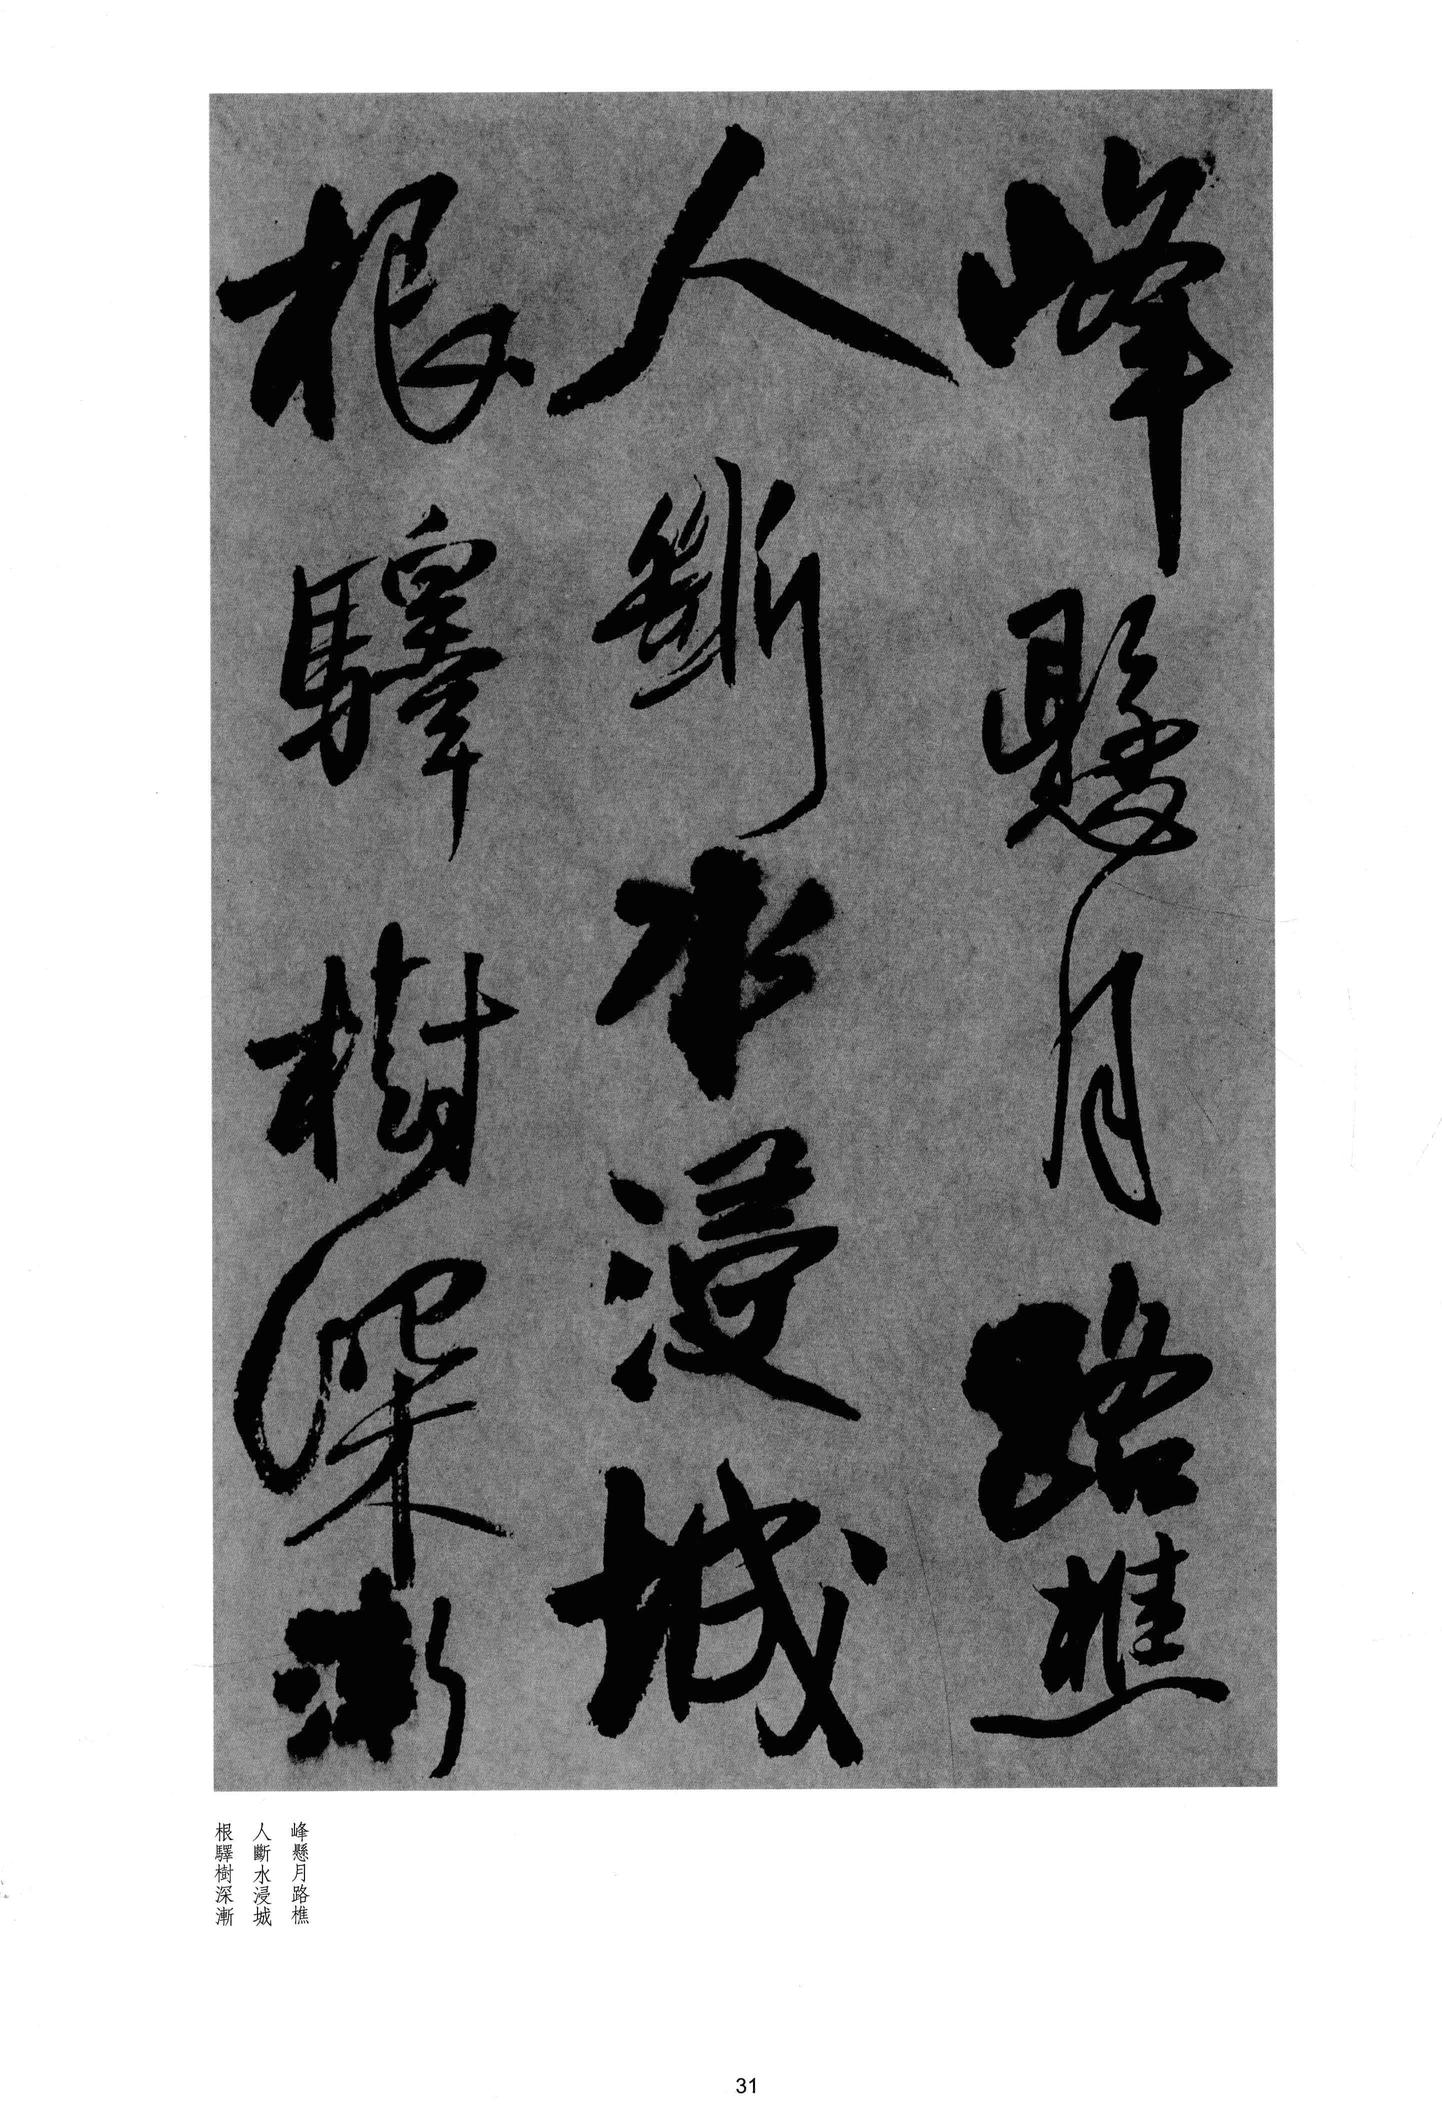 峰懸月路樵
人斷水浸城
根驛樹深漸
峰懸月路樵
人斷水浸城
根驛樹深漸
31